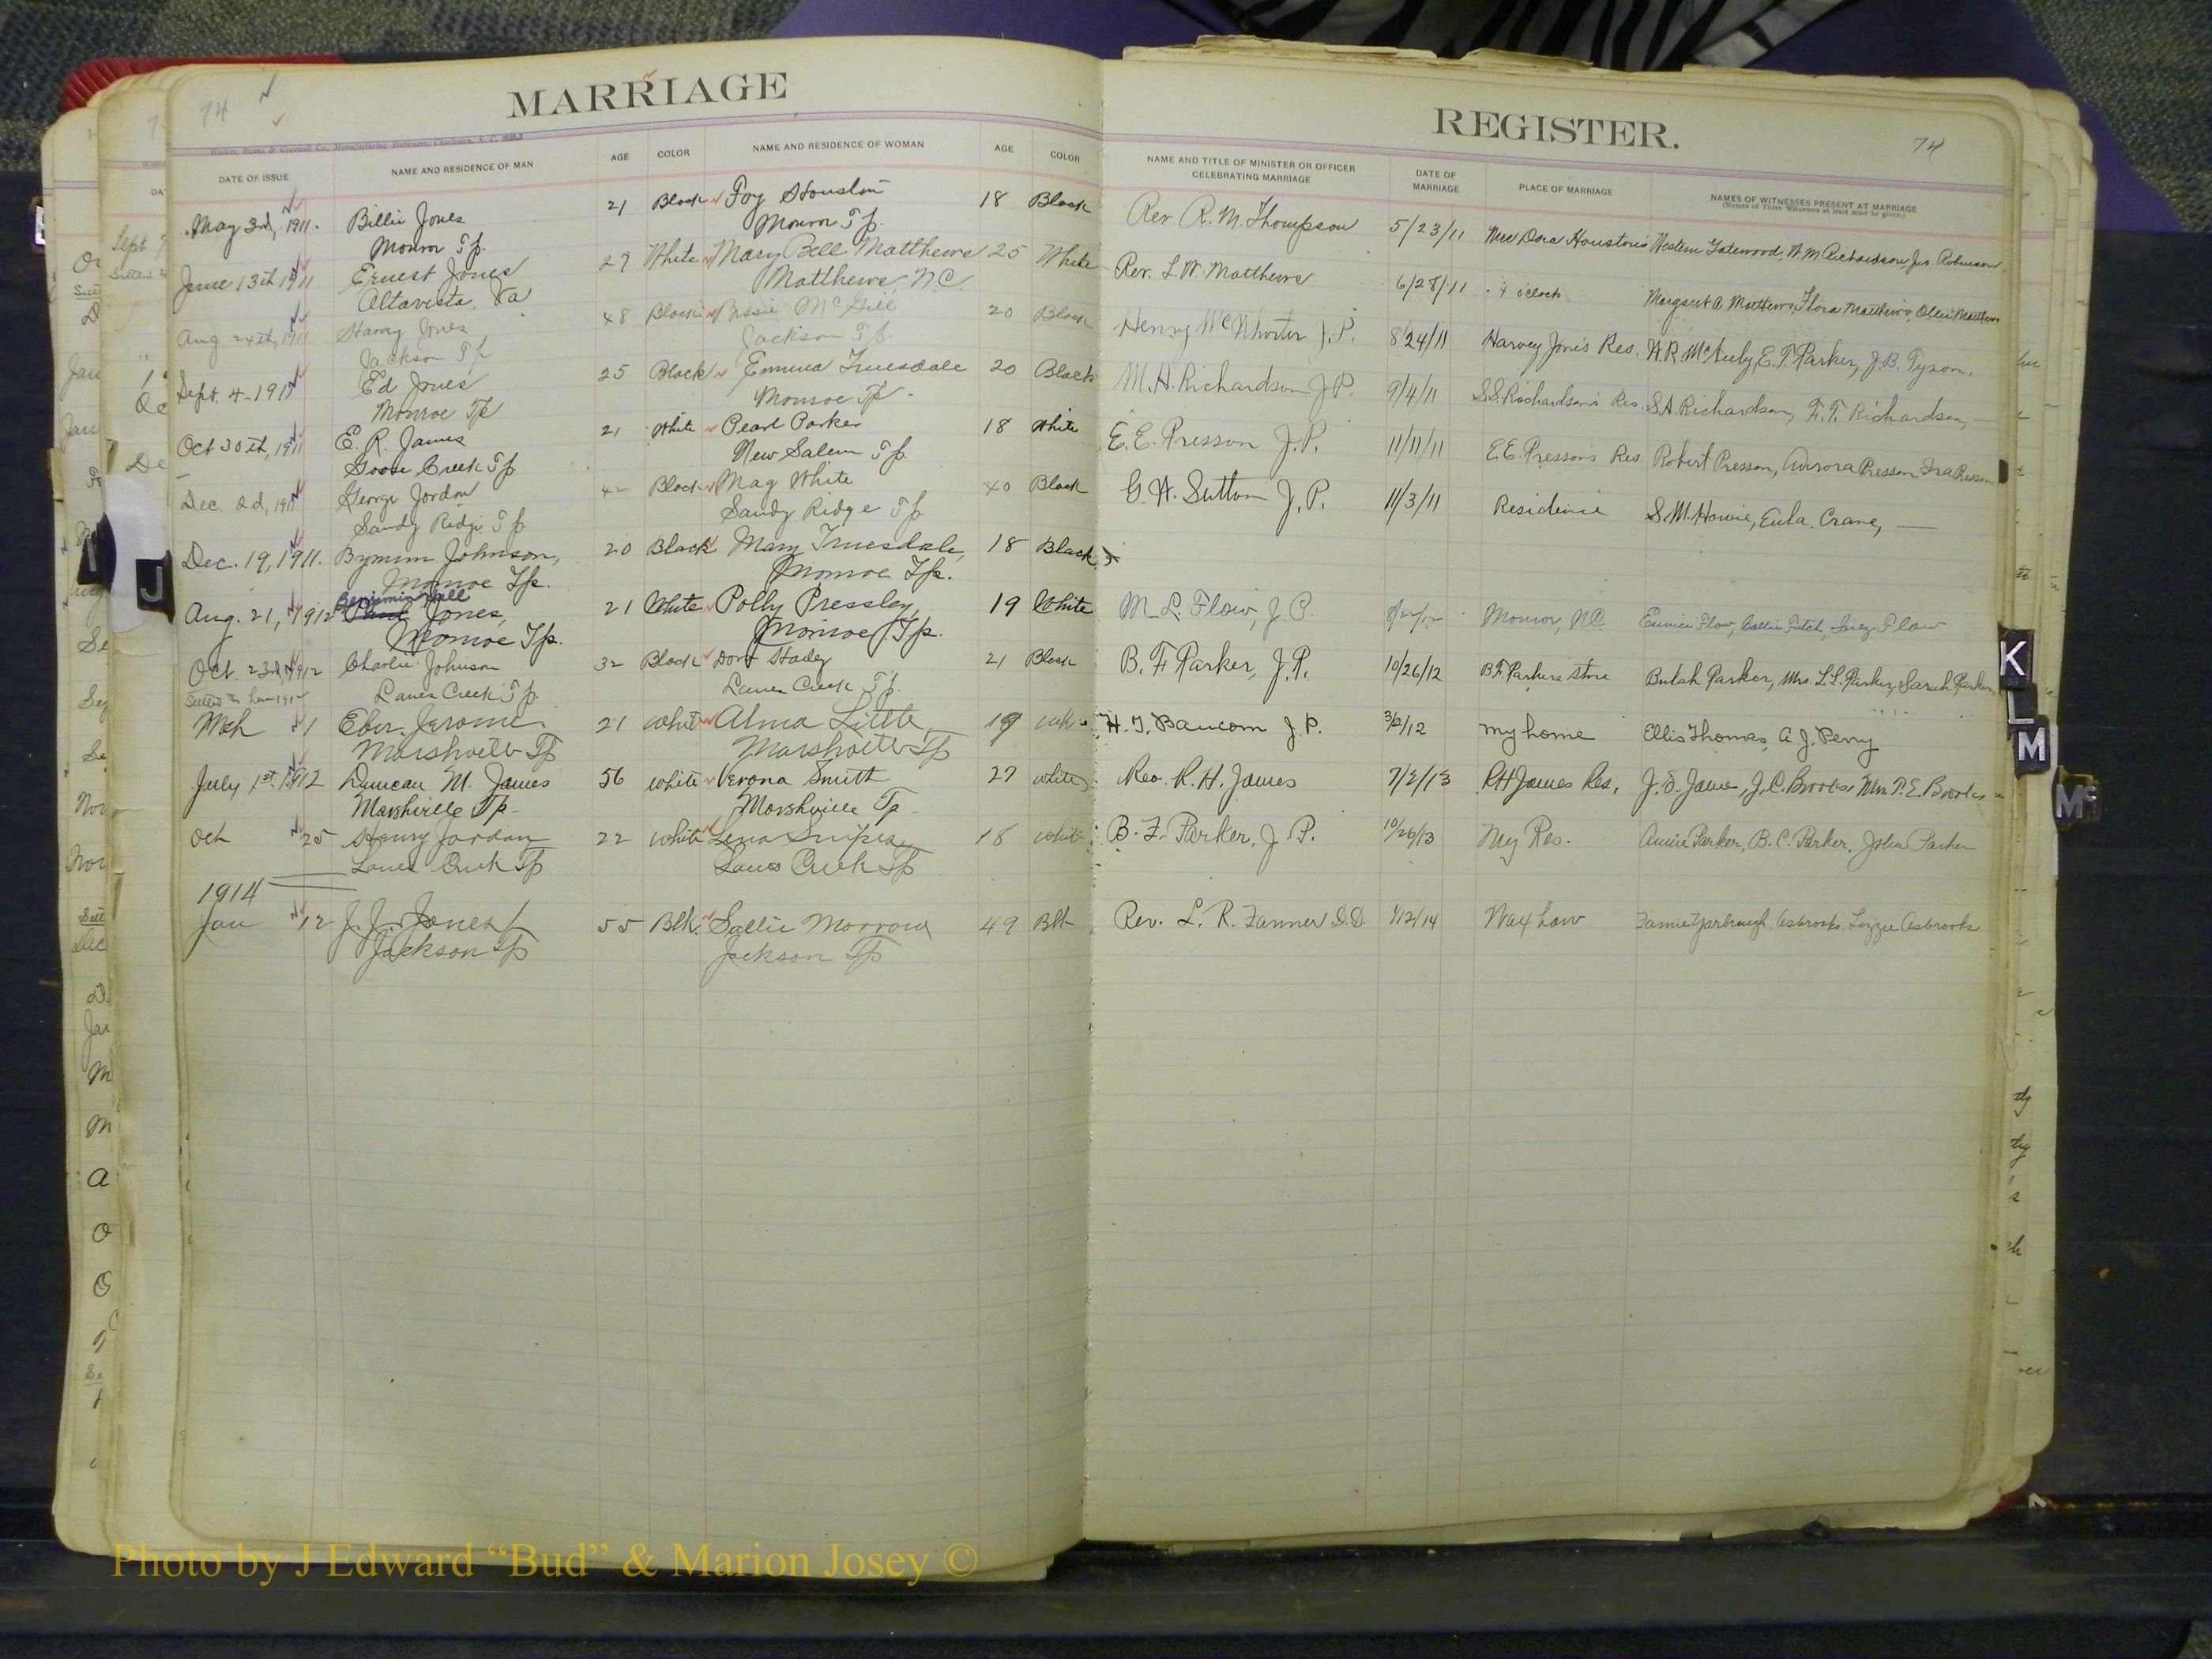 74 MARRIAGE
REGISTER. 74
DATE OF ISSUE NAME AND RESIDENCE OF MAN AGE COLOR NAME AND RESIDENCE OF WOMAN AGE COLOR NAME AND TITLE OF MINISTER OR OFFICER CELEBRATING MARRIAGE DATE OF MARRIAGE PLACE OF MARRIAGE NAMES OF WITNESSES PRESENT AT MARRIAGE
(Names of Three Witnesses at least must be given.)
May 3rd, 1911. Billie Jones 21 Black Foy Houston 18 Black Rev R. M. Thompson 5/23/11 Mrs Dora Houston's Western Gatewood, W. M. Richardson, Jno. Robinson
Monroe Tp. Monroe Tp.
June 13th 1911 Ernest Jones 27 White Mary Bell Matthews 25 White Rev. L. W. Matthews 6/28/11 4 o'clock Margaret A. Matthews, Flora Matthews, Ollie Matthews
Altavista, Va Matthews N.C.
Aug 24th, 1911 Harvey Jones 48 Black Bessie McGill 20 Black Henry McWhorter J.P. 8/24/11 Harvey Jones Res. W. R. McNeely, E. T. Parker, J. B. Tyson.
Jackson Tp Jackson Tp.
Sept. 4-1911 Ed Jones 25 Black Emma Truesdale 20 Black M. H. Richardson J.P. 9/4/11 S.S. Richardson's Res. S. A. Richardson, F. T. Richardson,
Monroe Tp Monroe Tp.
Oct 30th, 1911 E. R. James 21 White Pearl Parker 18 White E. E. Presson J.P. 11/11/11 E.E. Presson's Res. Robert Presson, Aurora Presson Ira Presson
Goose Creek Tp New Salem Tp.
Dec. 2d, 1911 George Jordon 42 Black Mag White 40 Black G. H. Sutton J.P. 11/3/11 Residence S. M. Howie, Eula Crane,
Sandy Ridge Tp. Sandy Ridge Tp
Dec. 19, 1911. Bymum Johnson, 20 Black Mary Truesdale, 18 Black
Monroe Tp. Monroe Tp.
Benjamin Hall
Aug. 21, 1912 Paul Jones, 21 White Polly Pressley, 19 White M. L. Flow, J.P. Monroe, NC. Eunice Flow, Flow
Monroe Tp. Monroe Tp.
Oct. 23rd, 1912 Charlie Johnson 32 Black Dora 21 Black B. F. Parker, J.P. 10/26/12 B.F. Parkers Store Bulah Parker, Mrs. L.L. Parker, Sarah Parker
Lanes Creek Tp. Lanes Creek Tp.
Mch 1 Eber Jerome. 21 white Alma Little 19 H. J. Baucom J.P. 3/2/12 my home Ellis Thomas, A J. Perry
Marshville Tp Marshville Tp
July 1st 1912 Duncan M. James 56 white Verona Smith 27 white Rev. R. H. James 7/2/13 RH James Res, J. D. James, J. C. Brooks, Mrs. P. E. Brooks
Marshville Tp. Marshville Tp
Oct 25 Henry Jordan 22 white Lena Snipes 18 white B. F. Parker, J.P. 10/26/13 My Res. Annie Parker, B. C. Parker, John Parker
Lanes Creek Tp Lanes Creek Tp
1914
Jan 12 J. J. Jones 55 Blk. Sallie Morrow 49 Blk Rev. L. R. D.D. 1/12/14 Waxhaw Asbrooks, Lizzie Asbrooks
Jackson Tp Jackson Tp
I
J
K
L
M
Mc
Photo by J Edward “Bud” & Marion Josey ©